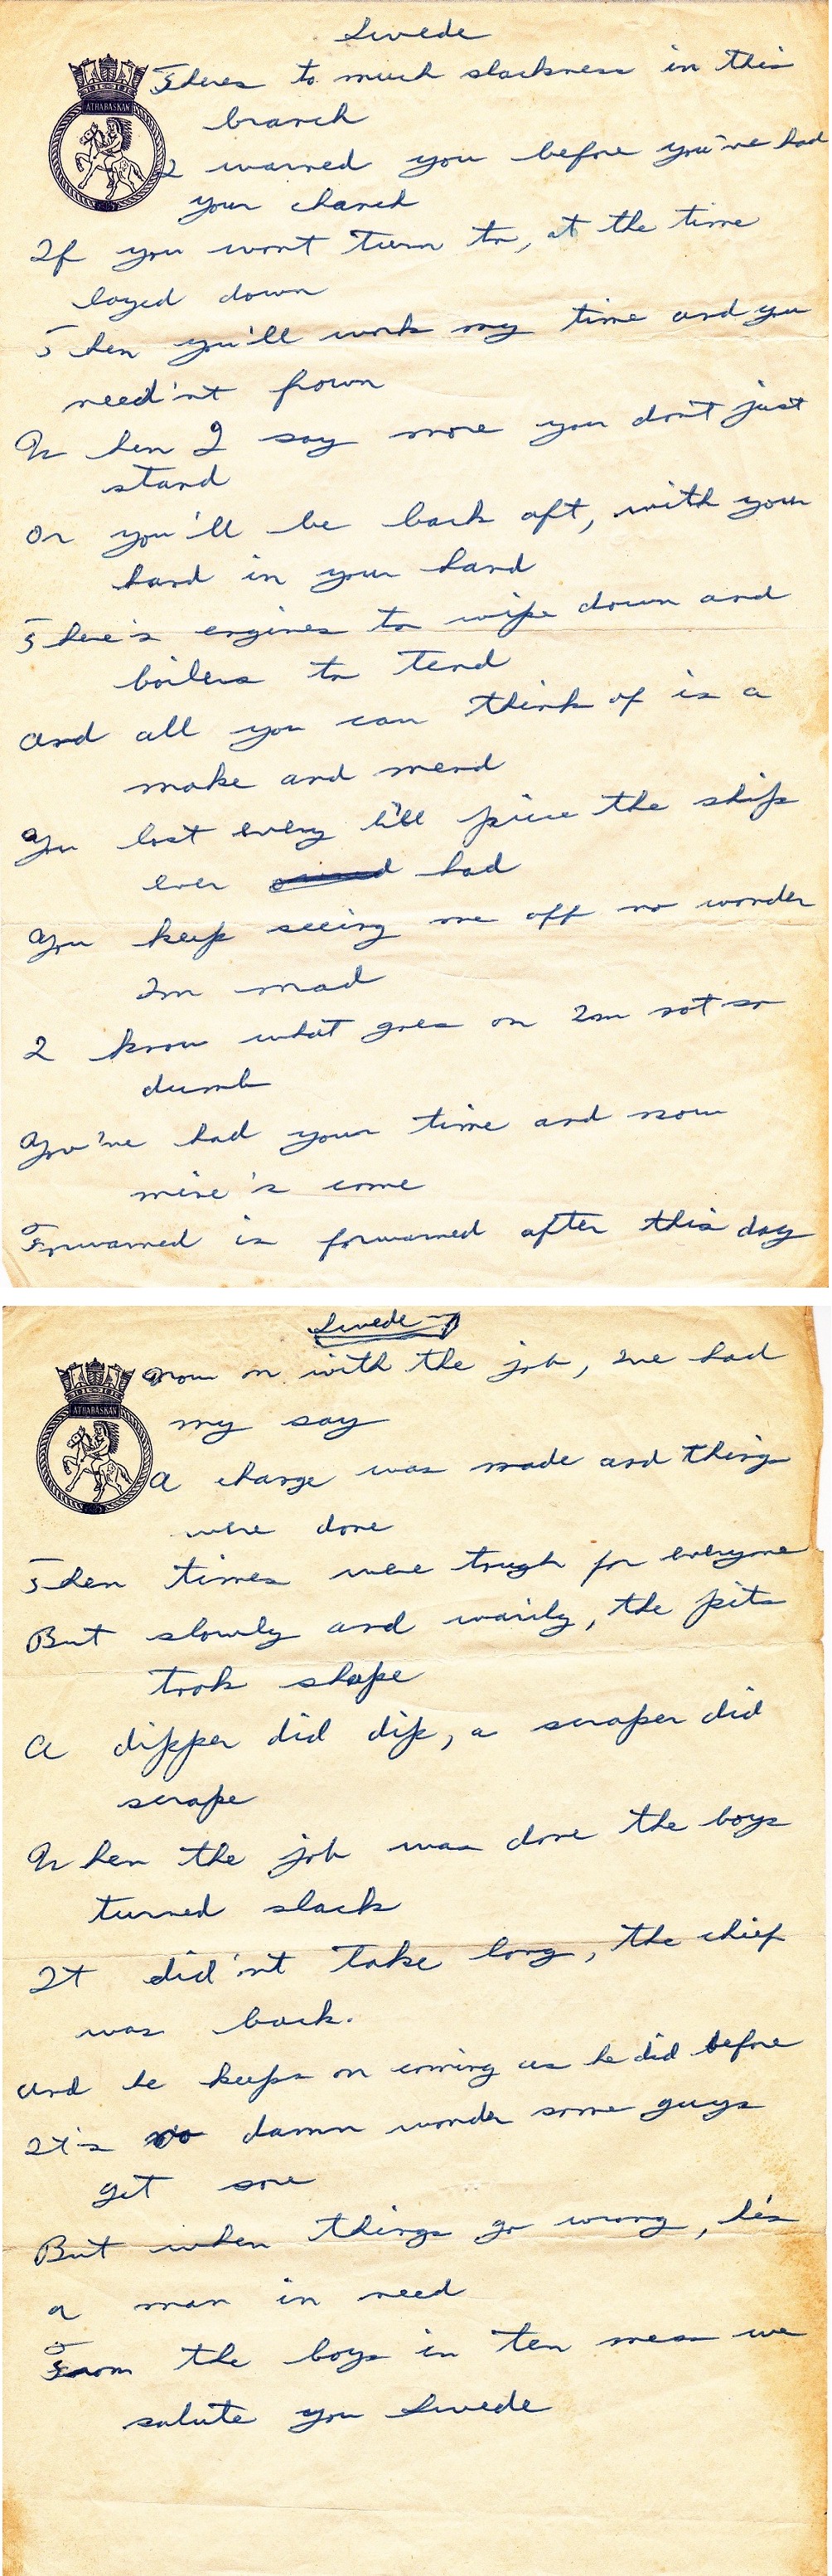 Swede
ATHABASKAN
Theres to much slackness in this
branch
I warned you before you've had
your chanch
If you wont turn to, at the time
layed down
Then you'll work my time and you
need'nt frown
When I say more you don't just
stand
Or you'll be back aft, with your
hand in your hand
There's engines to wipe down and
boilers to tend
And all you can think of is a
make and mend
You lost every lill piece the ship
ever had
You keep seeing me off no wonder
Im mad
I know what goes on Im not so
dumb
You've had your time and now
mine's come
Forwarned is forwarned after this day
Swede
ATHABASKAN
Now on with the job, I've had
my say
A change was made and things
were done
Then times were tough for everyone
But slowly and warily, the pits
took shape
A dipper did dip, a scraper did
scrape
When the job was done the boys
turned slack
It did'nt take long, the chief
was back.
And he keeps on coming as he did before
It's no damn wonder some guys
get sore
But when things go wrong, he's
a man in need
From the boys in ten mess we
salute you Swede